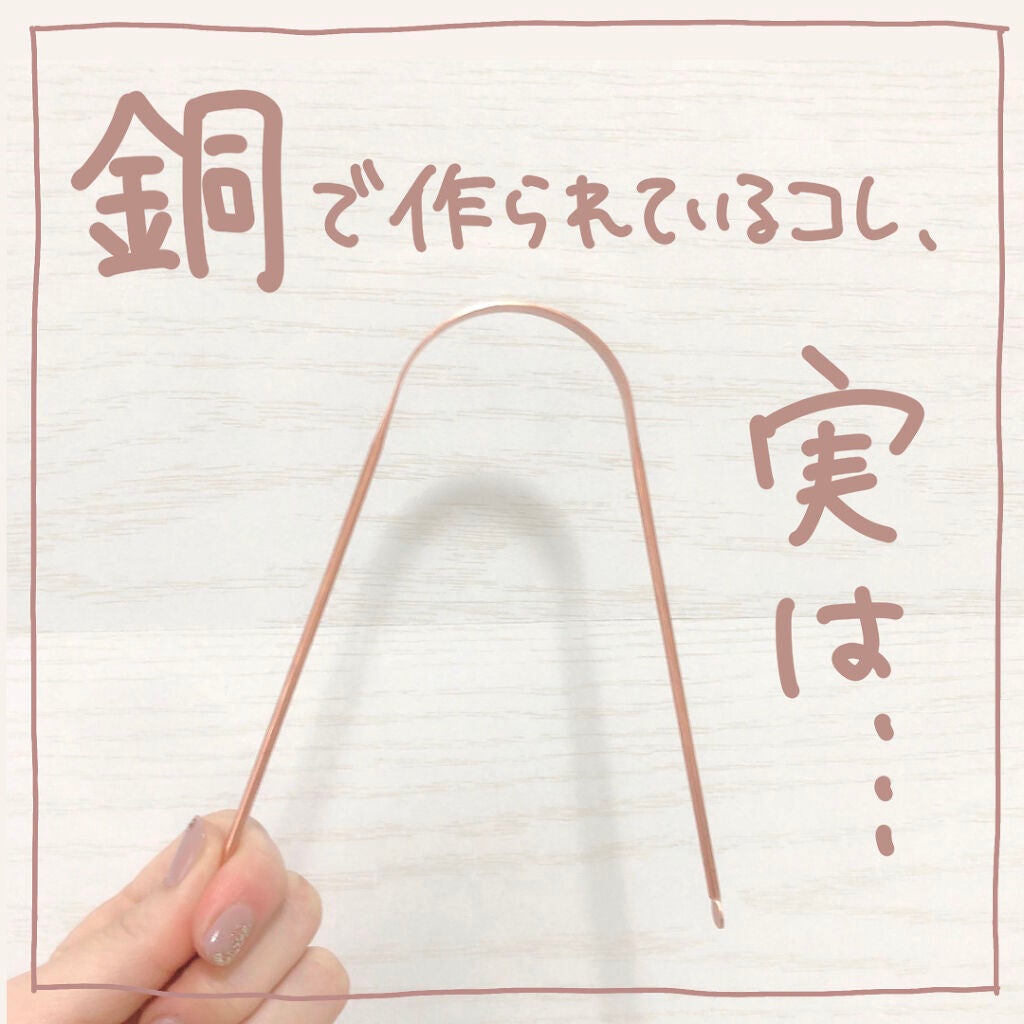 銅で作られているコレ、
実は・・・・